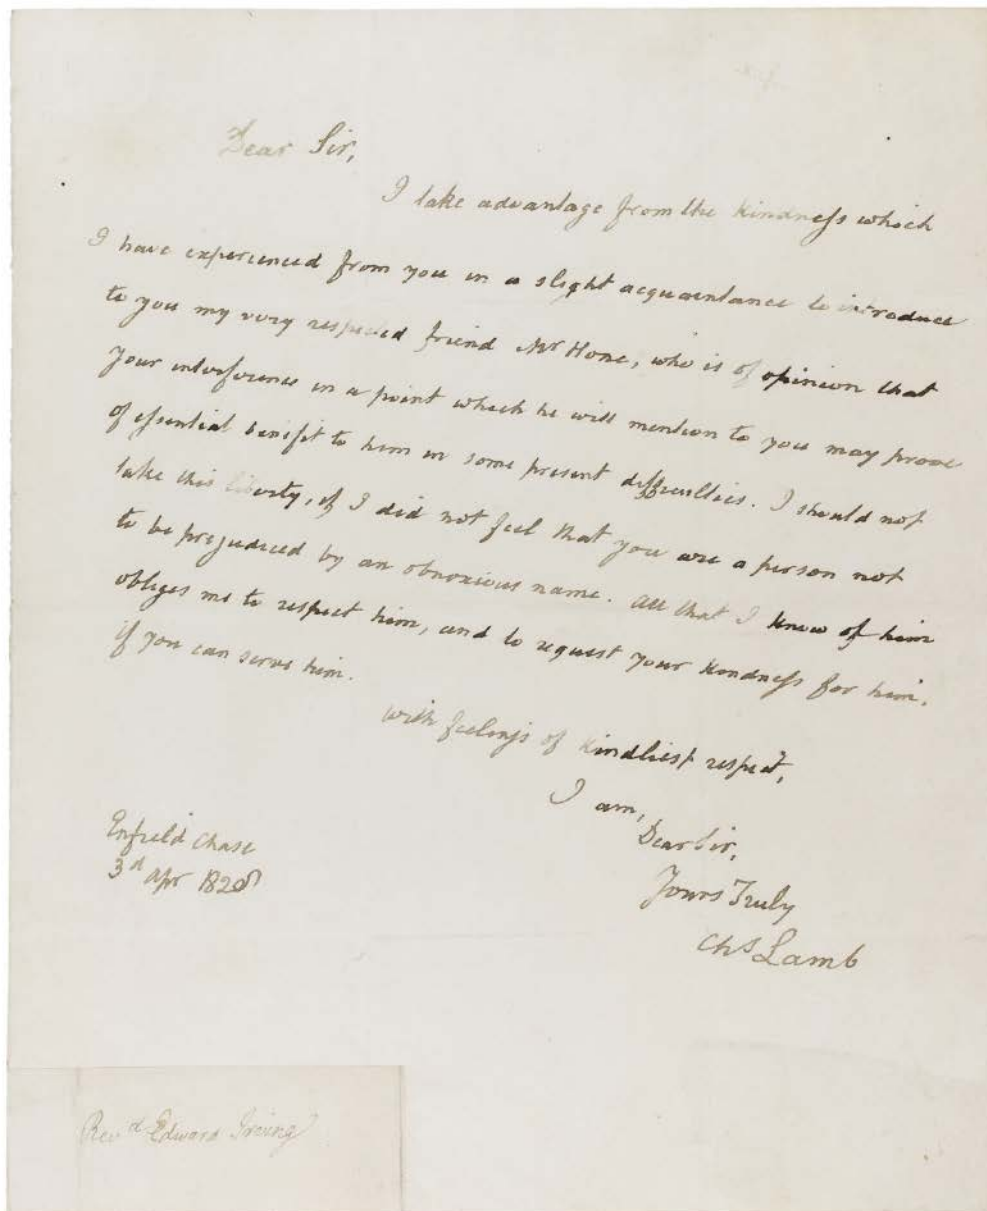 Dear Sir,
I take advantage from the kindness which
I have experienced from you in a slight acquaintance to introduce
to you my very respected friend Mr Hone, who is of opinion that
your interference in a point which he will mention to you may prove
of essential benefit to him in some present difficulties. I should not
take this liberty, if I did not feel that you are a person not
to be prejudiced by an obnoxious name. All that I know of him
obliges me to respect him, and to request your kindness for him,
if you can serve him.
With feelings of kindliest respect,
I am,
Dear Sir,
Yours Truly
Chs Lamb
Enfield Chase
3d Apr 1828
Revd Edward Irving